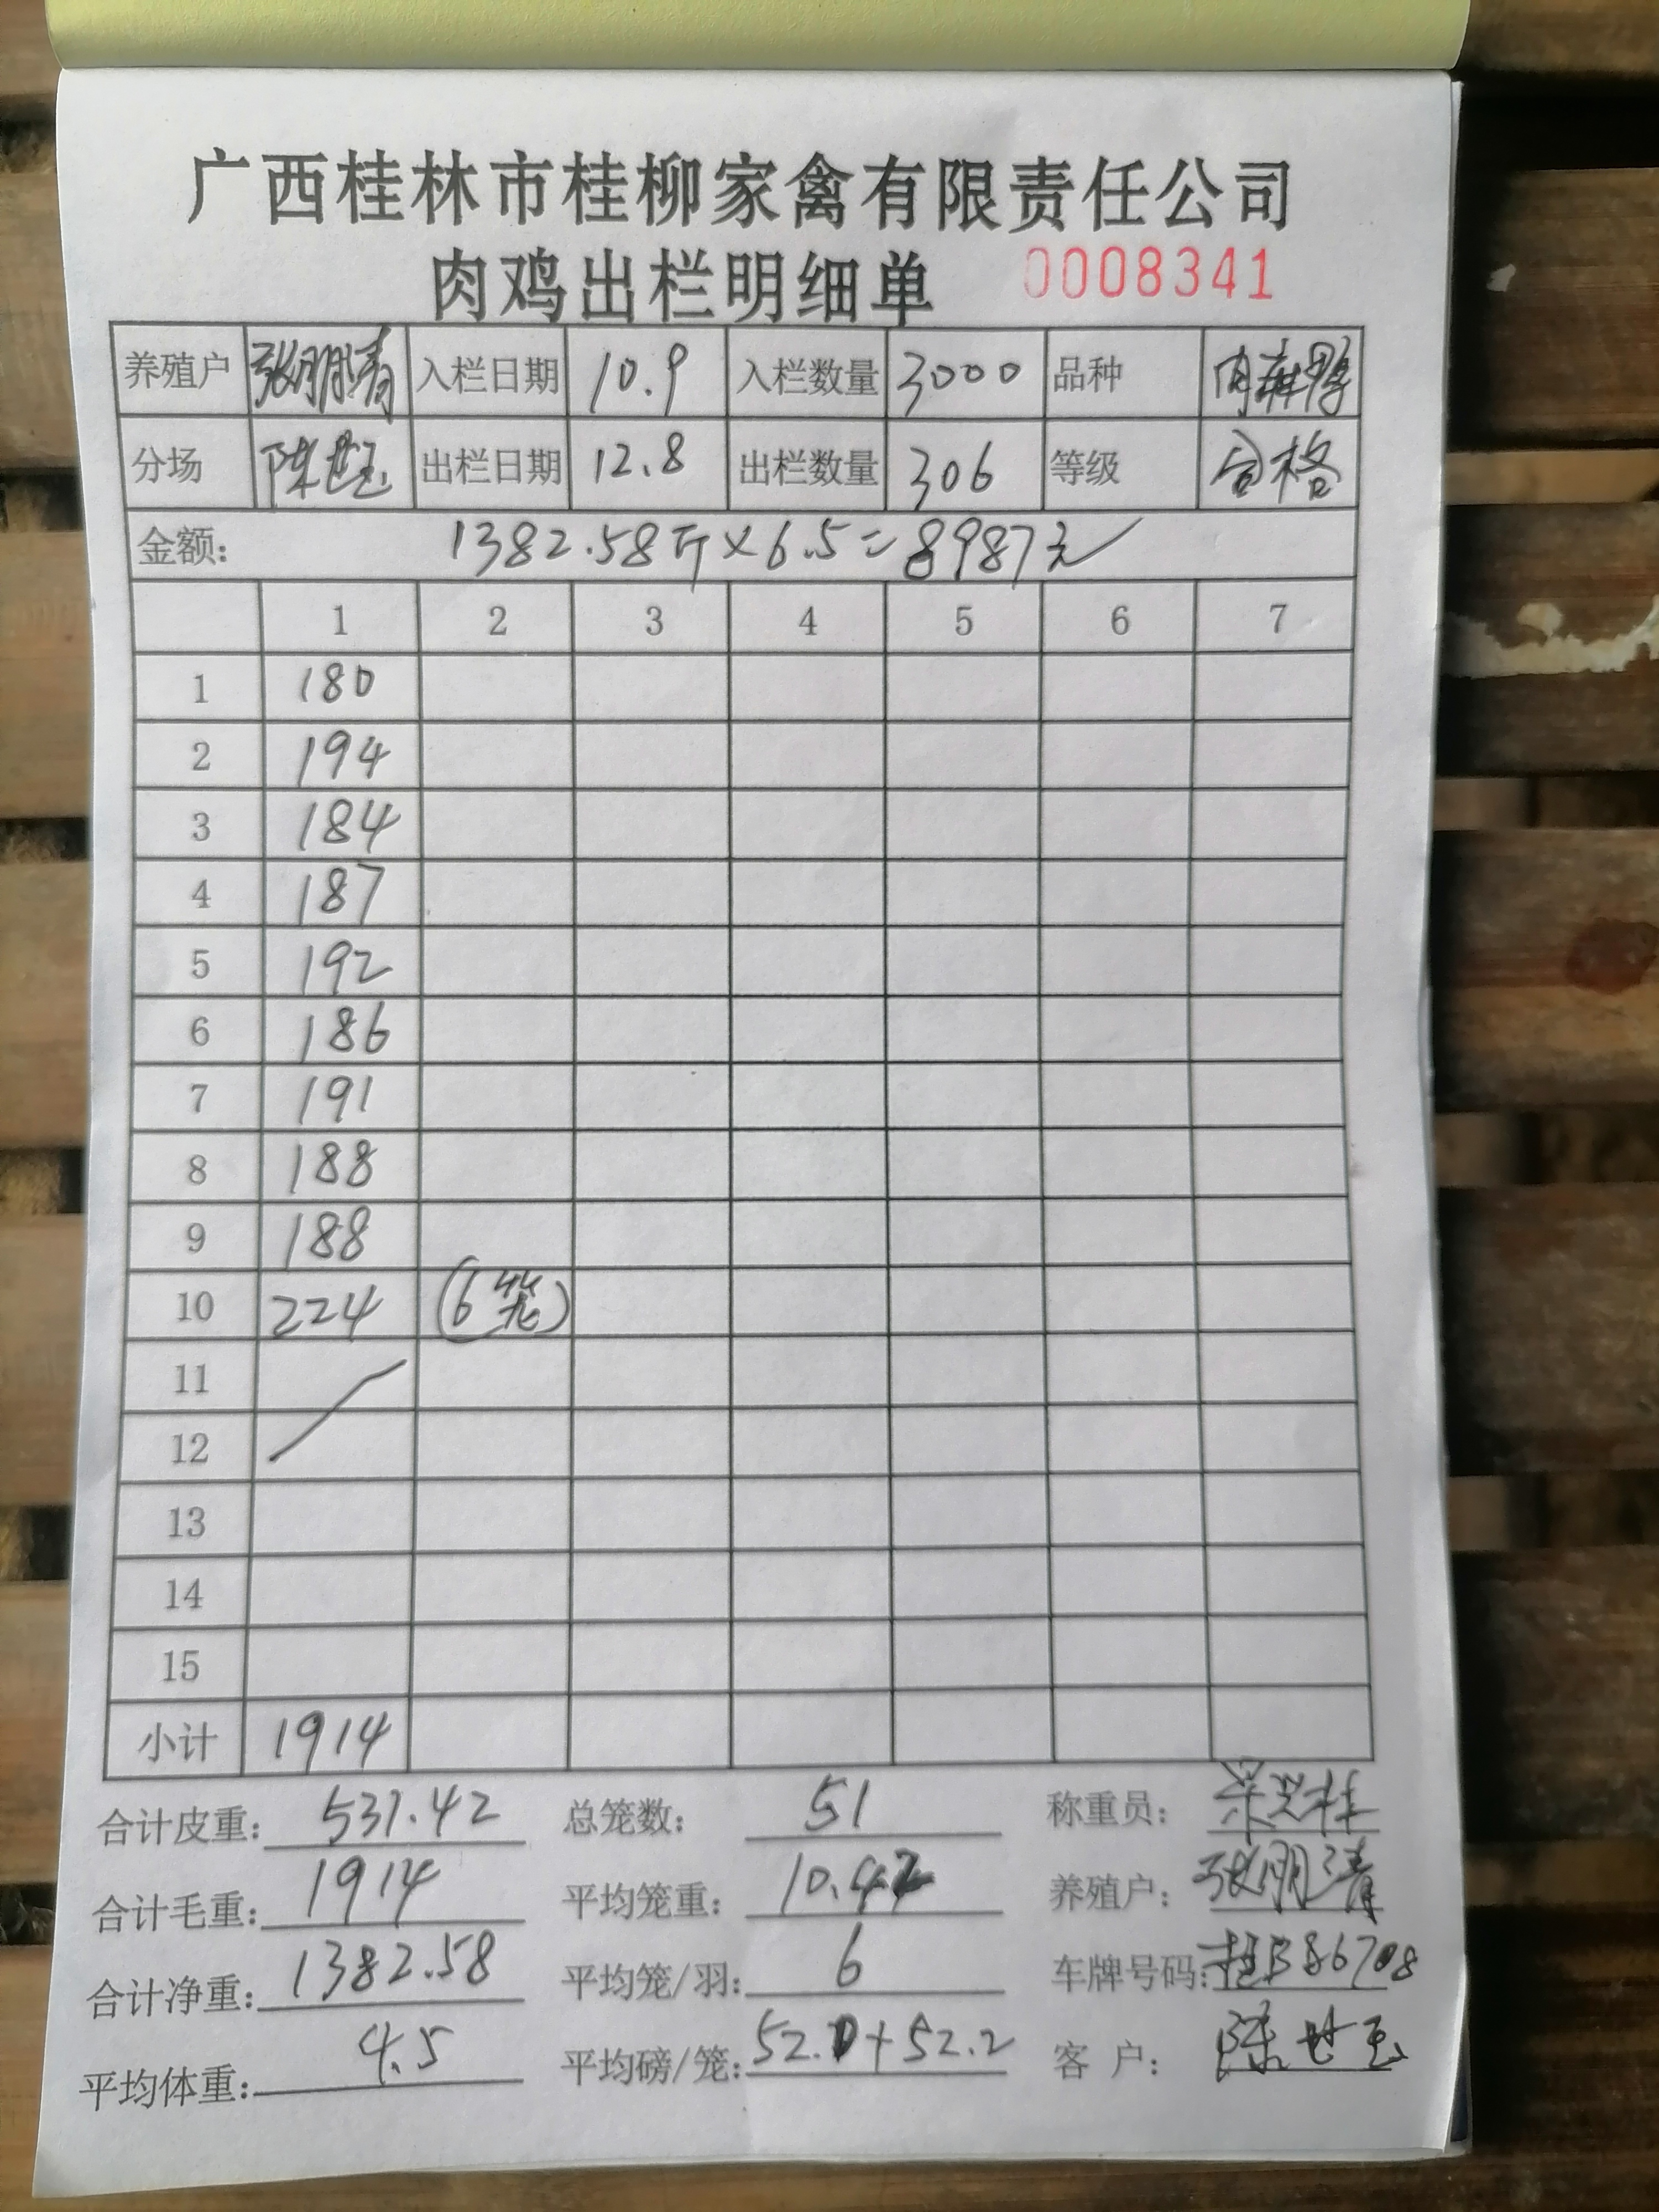 广西桂林市桂柳家禽有限责任公司
肉鸡出栏明细单 0008341
养殖户 张朋清 入栏日期 10.9 入栏数量 3000 品种 肉麻鸭
分场 陈世玉 出栏日期 12.8 出栏数量 306 等级 合格
金额: 1382.58斤×6.5=8987元
1 2 3 4 5 6 7
1 180
2 194
3 184
4 187
5 192
6 186
7 191
8 188
9 188
10 224 (6笼)
11
12
13
14
15
小计 1914
合计皮重: 531.42 总笼数: 51 称重员:
合计毛重: 1914 平均笼重: 10.42 养殖户: 张朋清
合计净重: 1382.58 平均笼/羽: 6 车牌号码: 桂B86708
平均体重: 4.5 平均磅/笼: 52.0+52.2 客户: 陈世玉